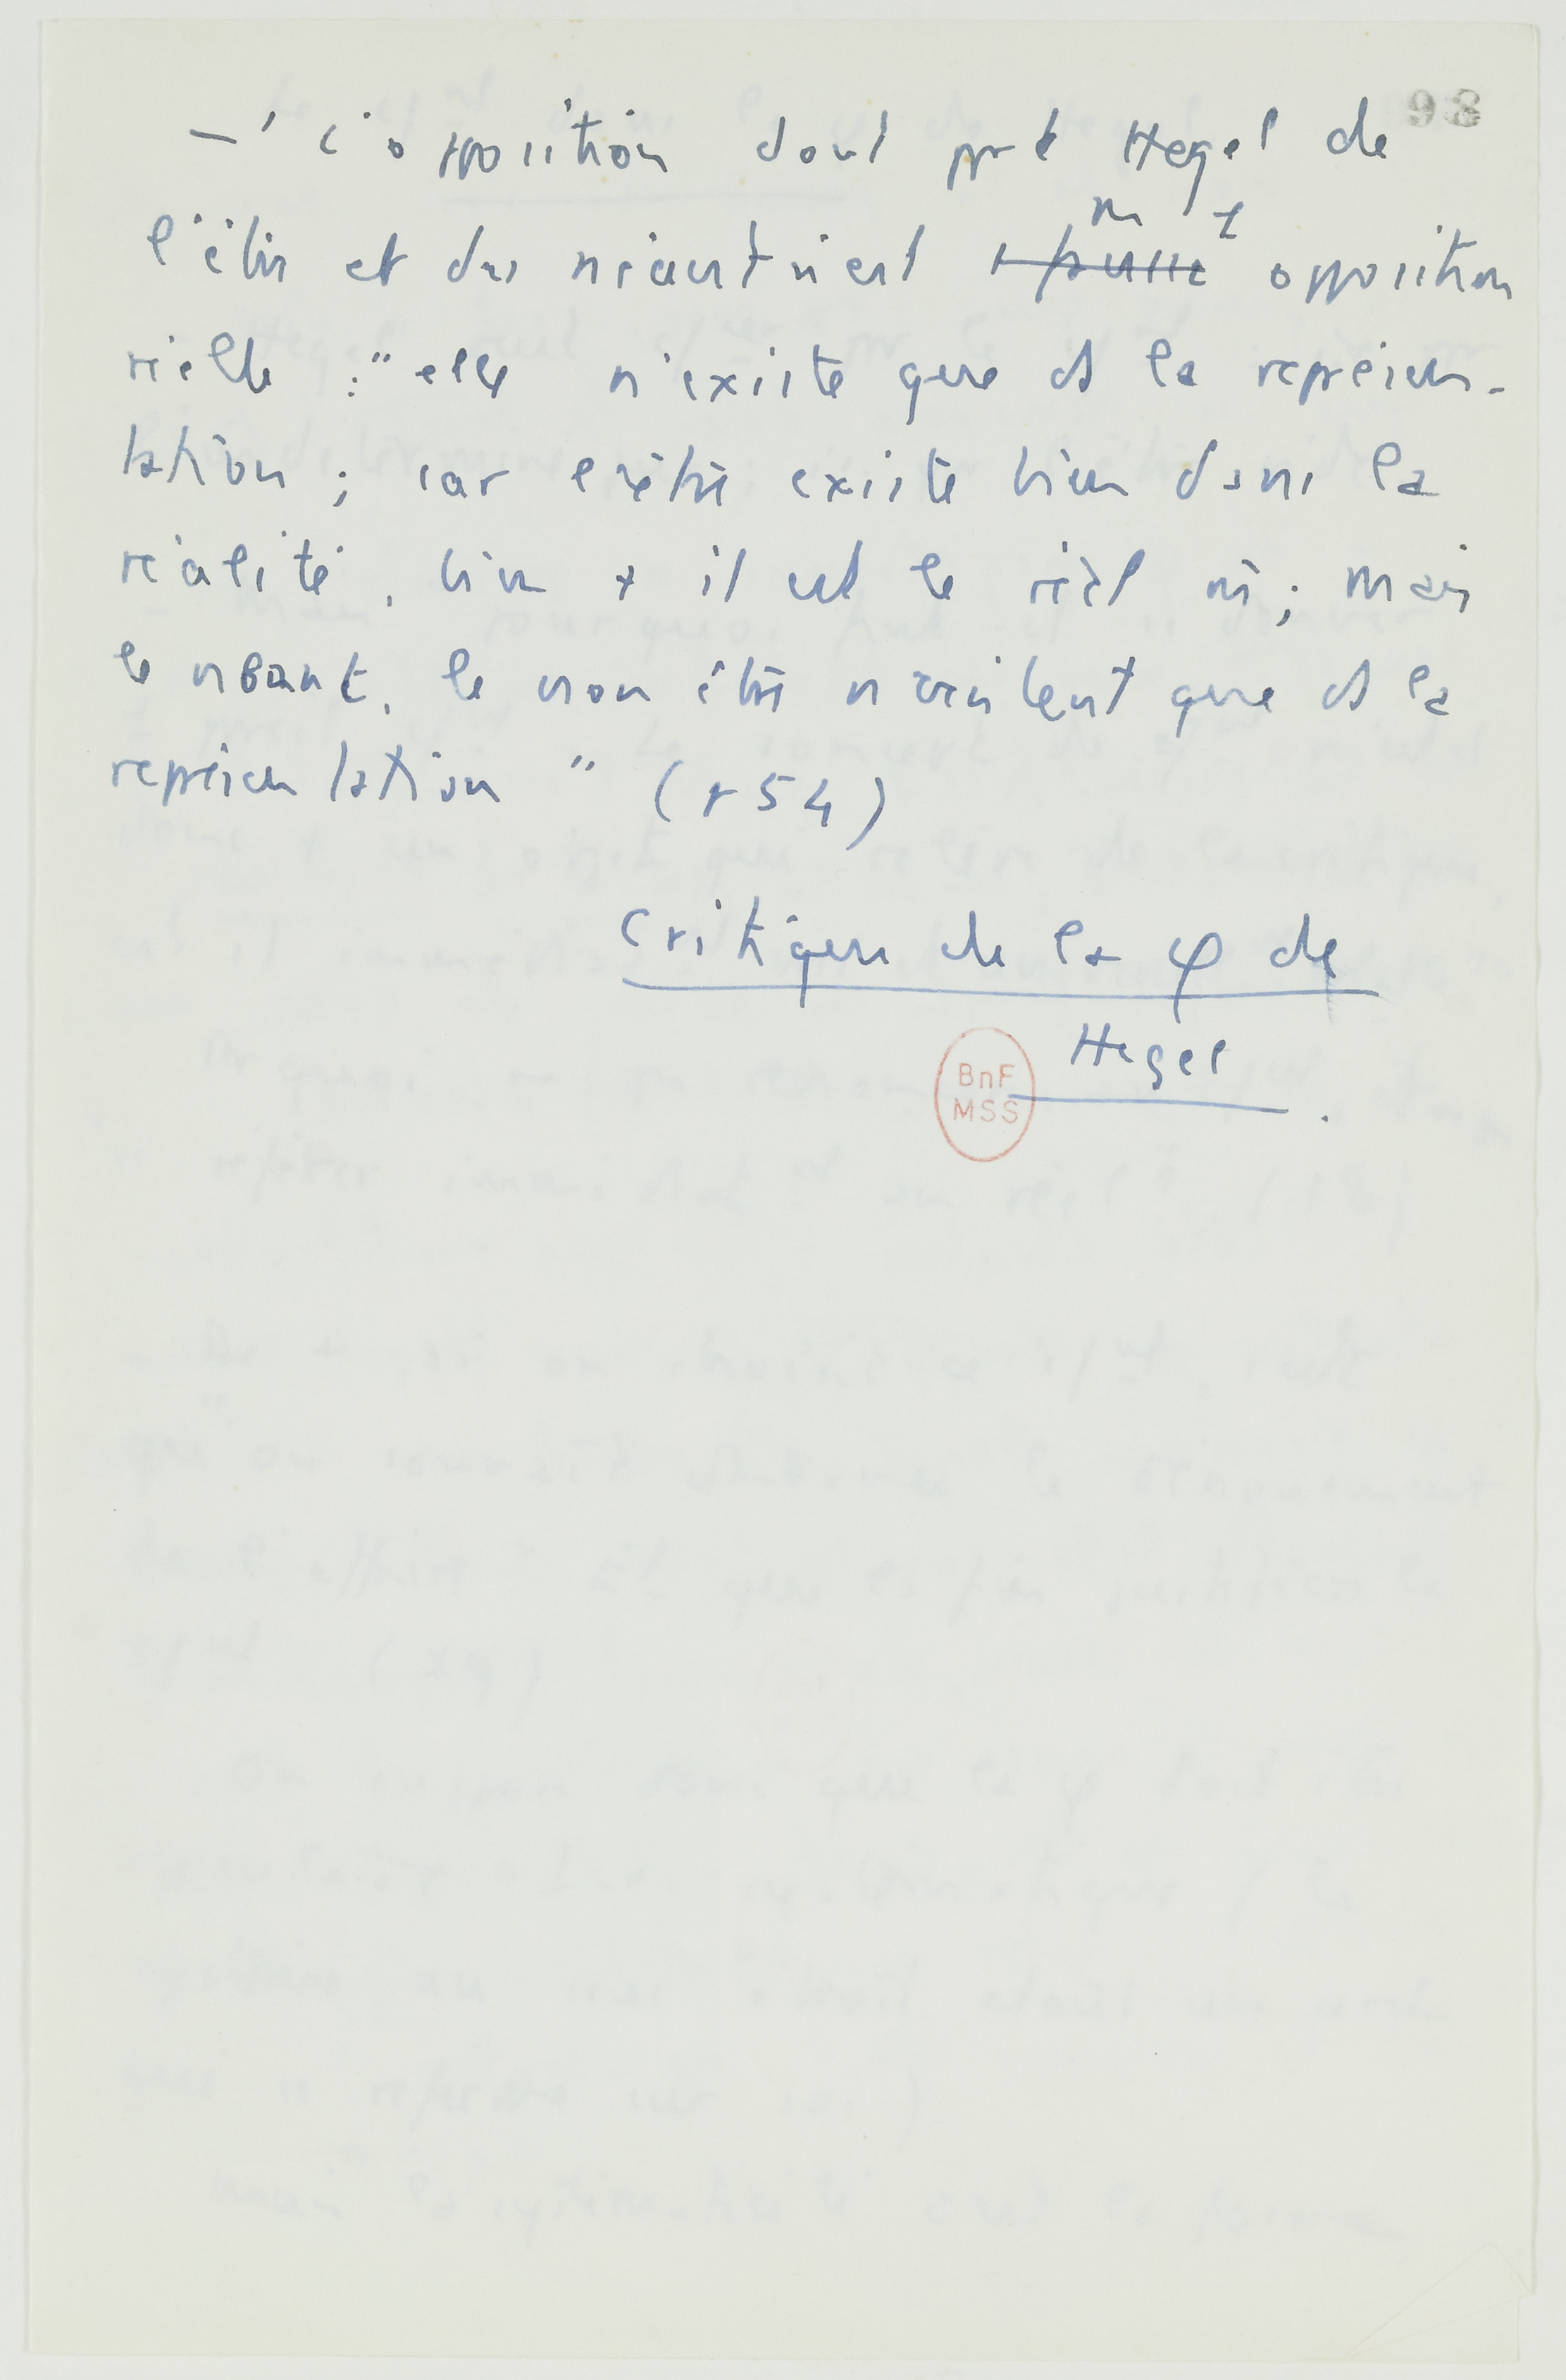 98
— L'opposition dont parle Hegel de
l'être et du néant n'est m opposition
réelle : " elle n'existe que ds la représen-
tation ; car l'être existe bien dans la
réalité, bien + il est le réel m̂ ; mais
le néant, le non être n'existent que ds la
représentation " (54)
Critique de la φ de
Hegel.
BnF
MSS